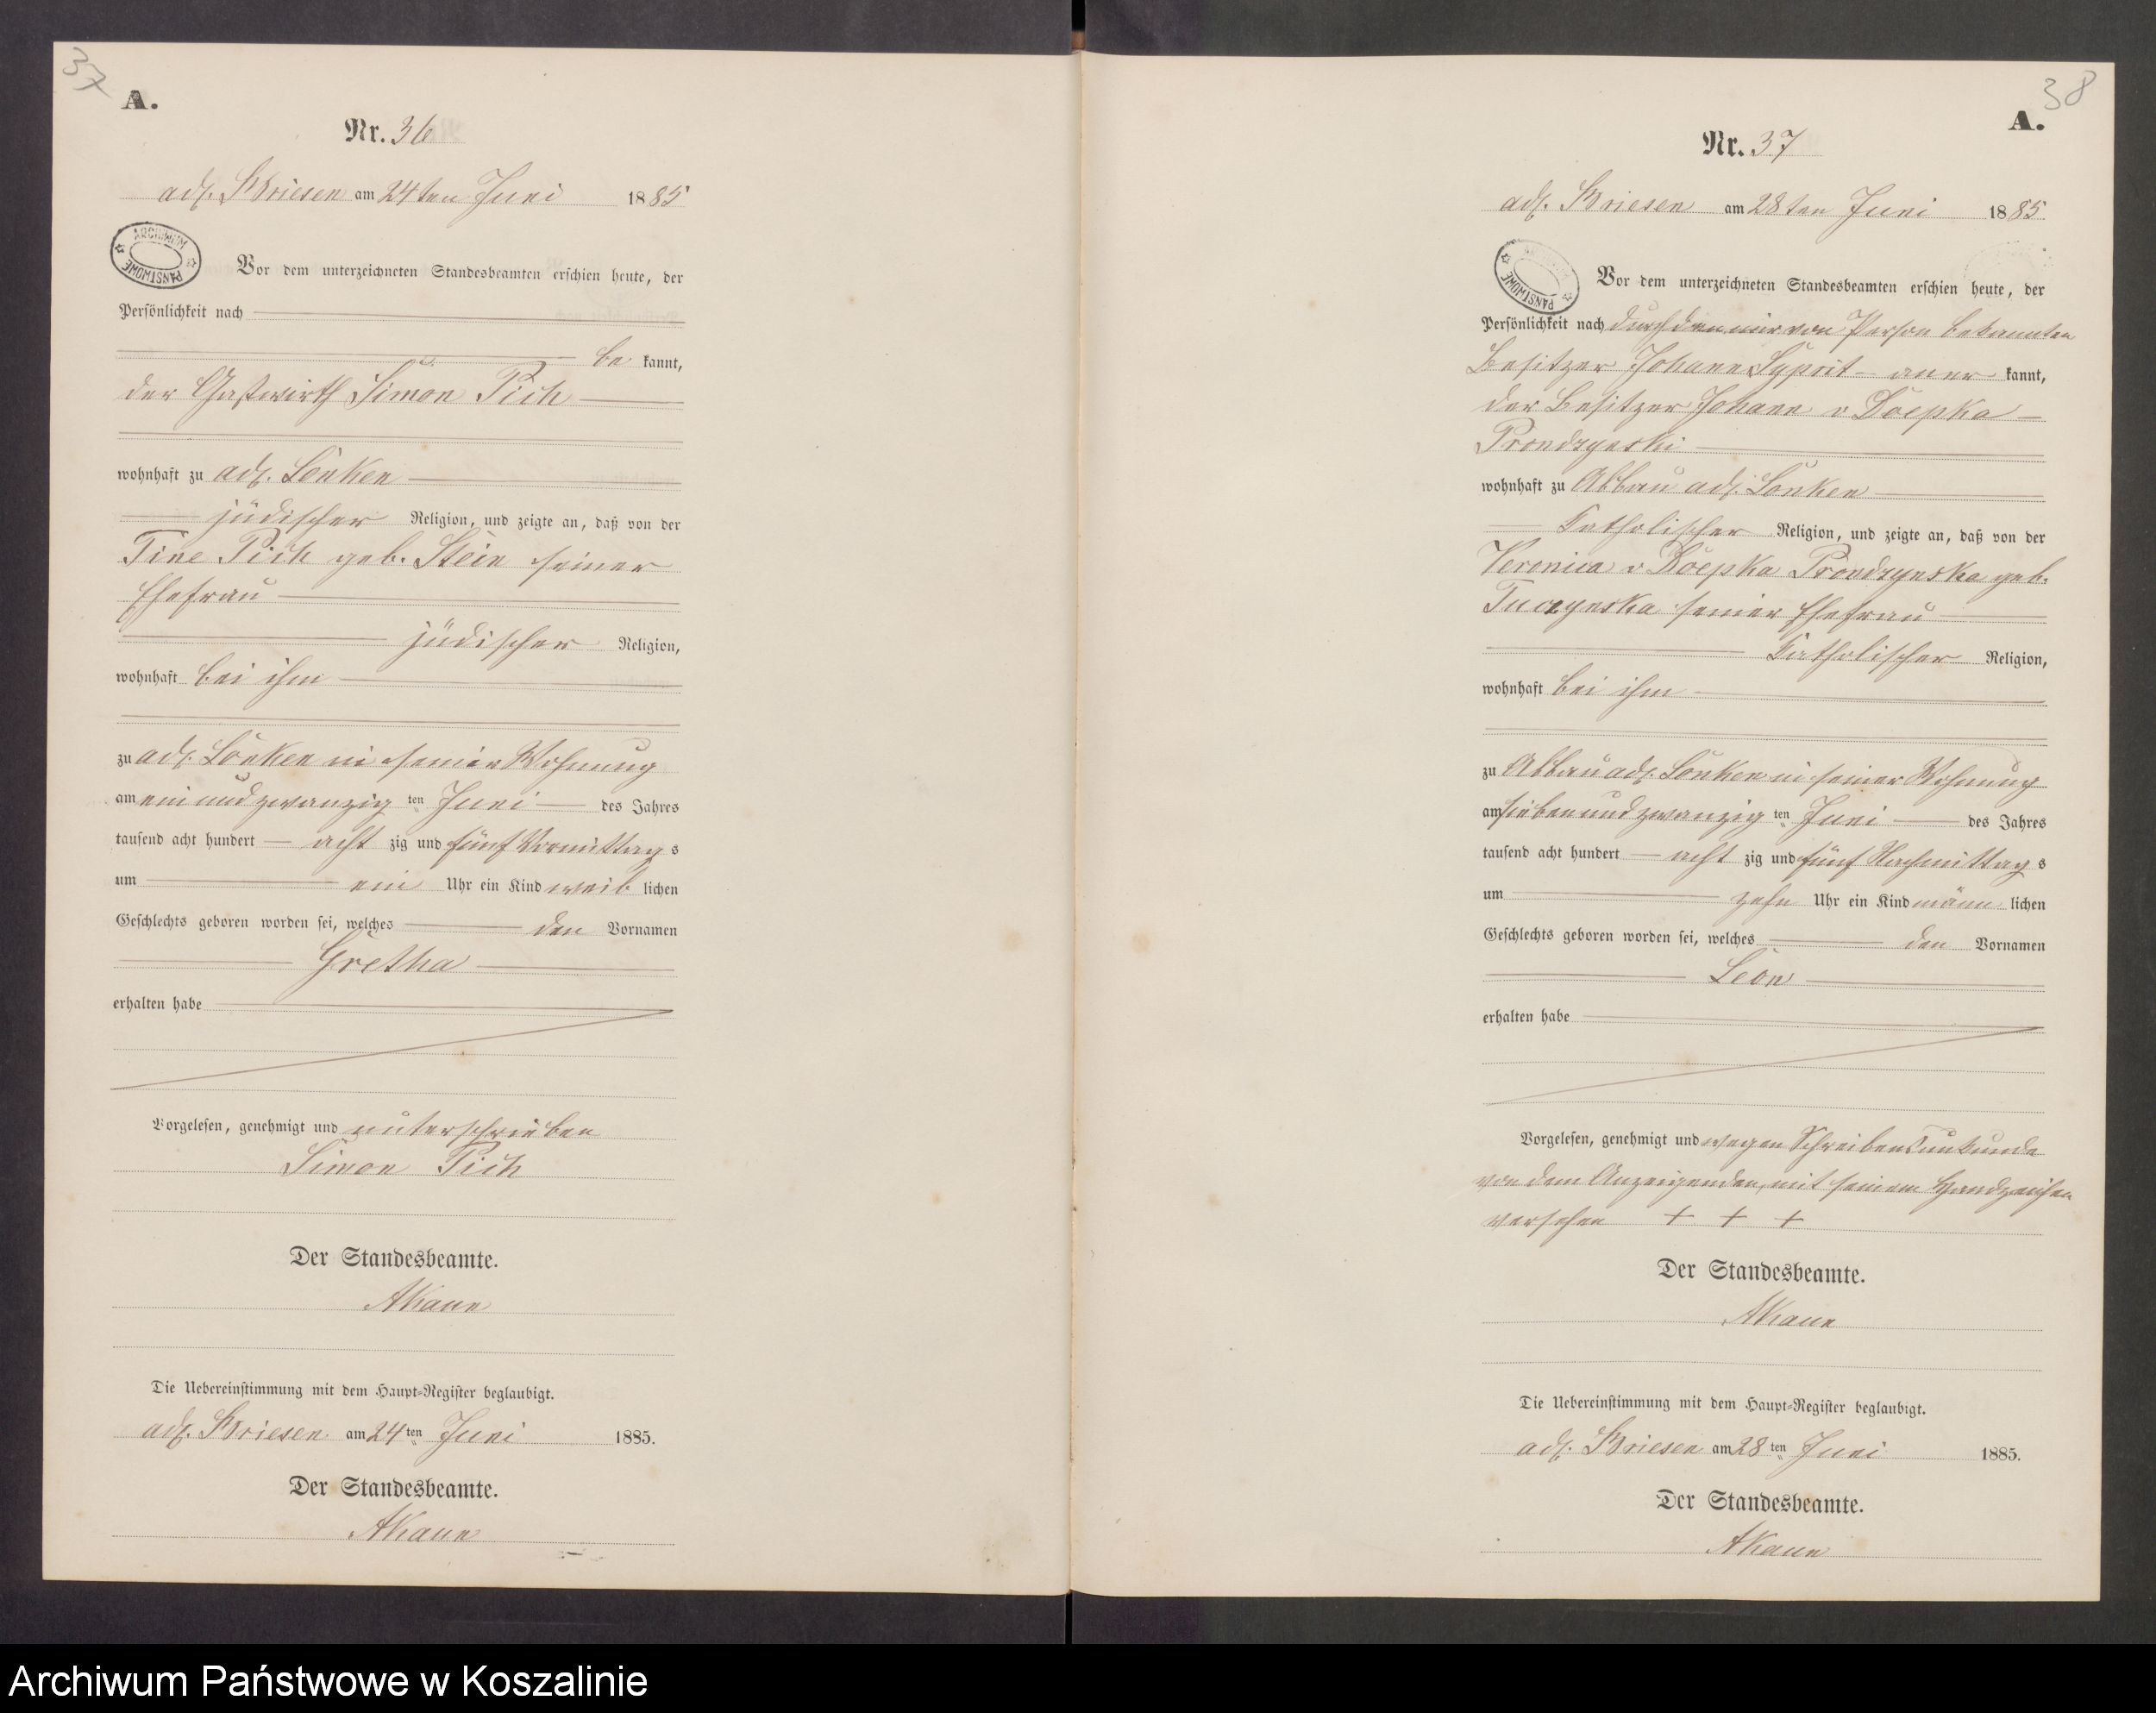 37
A.
Nr. 36
adl. Briesen am 24ten Juni 1885
ARCHIWUM PAŃSTWOWE
Vor dem unterzeichneten Standesbeamten erschien heute, der
Persönlichkeit nach
be kannt,
der Gastwirth Simon Pich
wohnhaft zu adl. Lonken
jüdischer Religion, und zeigte an, daß von der
Tine Pich geb. Stein seiner
Ehefrau
jüdischer Religion,
wohnhaft bei ihm
zu adl. Lonken in seiner Wohnung
am ein und zwanzig ten Juni des Jahres
tausend acht hundert acht zig und fünf Vormittags
um ein Uhr ein Kind weib lichen
Geschlechts geboren worden sei, welches den Vornamen
Gretha
erhalten habe
Vorgelesen, genehmigt und unterschrieben
Simon Pich
Der Standesbeamte.
Die Uebereinstimmung mit dem Haupt-Register beglaubigt.
adl. Briesen am 24ten Juni 1885.
Der Standesbeamte.
38
A.
Nr. 37
adl. Briesen am 28ten Juni 1885
ARCHIWUM PAŃSTWOWE
Vor dem unterzeichneten Standesbeamten erschien heute, der
Persönlichkeit nach durch den mir von Person bekannten
Besitzer Johann aner kannt,
der Besitzer Johann v
Prondzynski
wohnhaft zu Abbau adl. Lonken
Katholischer Religion, und zeigte an, daß von der
Veronica v Prondzynska geb.
seiner Ehefrau
Katholischer Religion,
wohnhaft bei ihm
zu Abbau adl. Lonken in seiner Wohnung
am sieben und zwanzig ten Juni des Jahres
tausend acht hundert acht zig und fünf Nachmittags
um zehn Uhr ein Kind männ lichen
Geschlechts geboren worden sei, welches den Vornamen
Leon
erhalten habe
Vorgelesen, genehmigt und wegen Schreibensunkunde
von dem Anzeigenden, mit seinem Handzeichen
versehen + + +
Der Standesbeamte.
Die Uebereinstimmung mit dem Haupt-Register beglaubigt.
adl. Briesen am 28ten Juni 1885.
Der Standesbeamte.
Archiwum Państwowe w Koszalinie